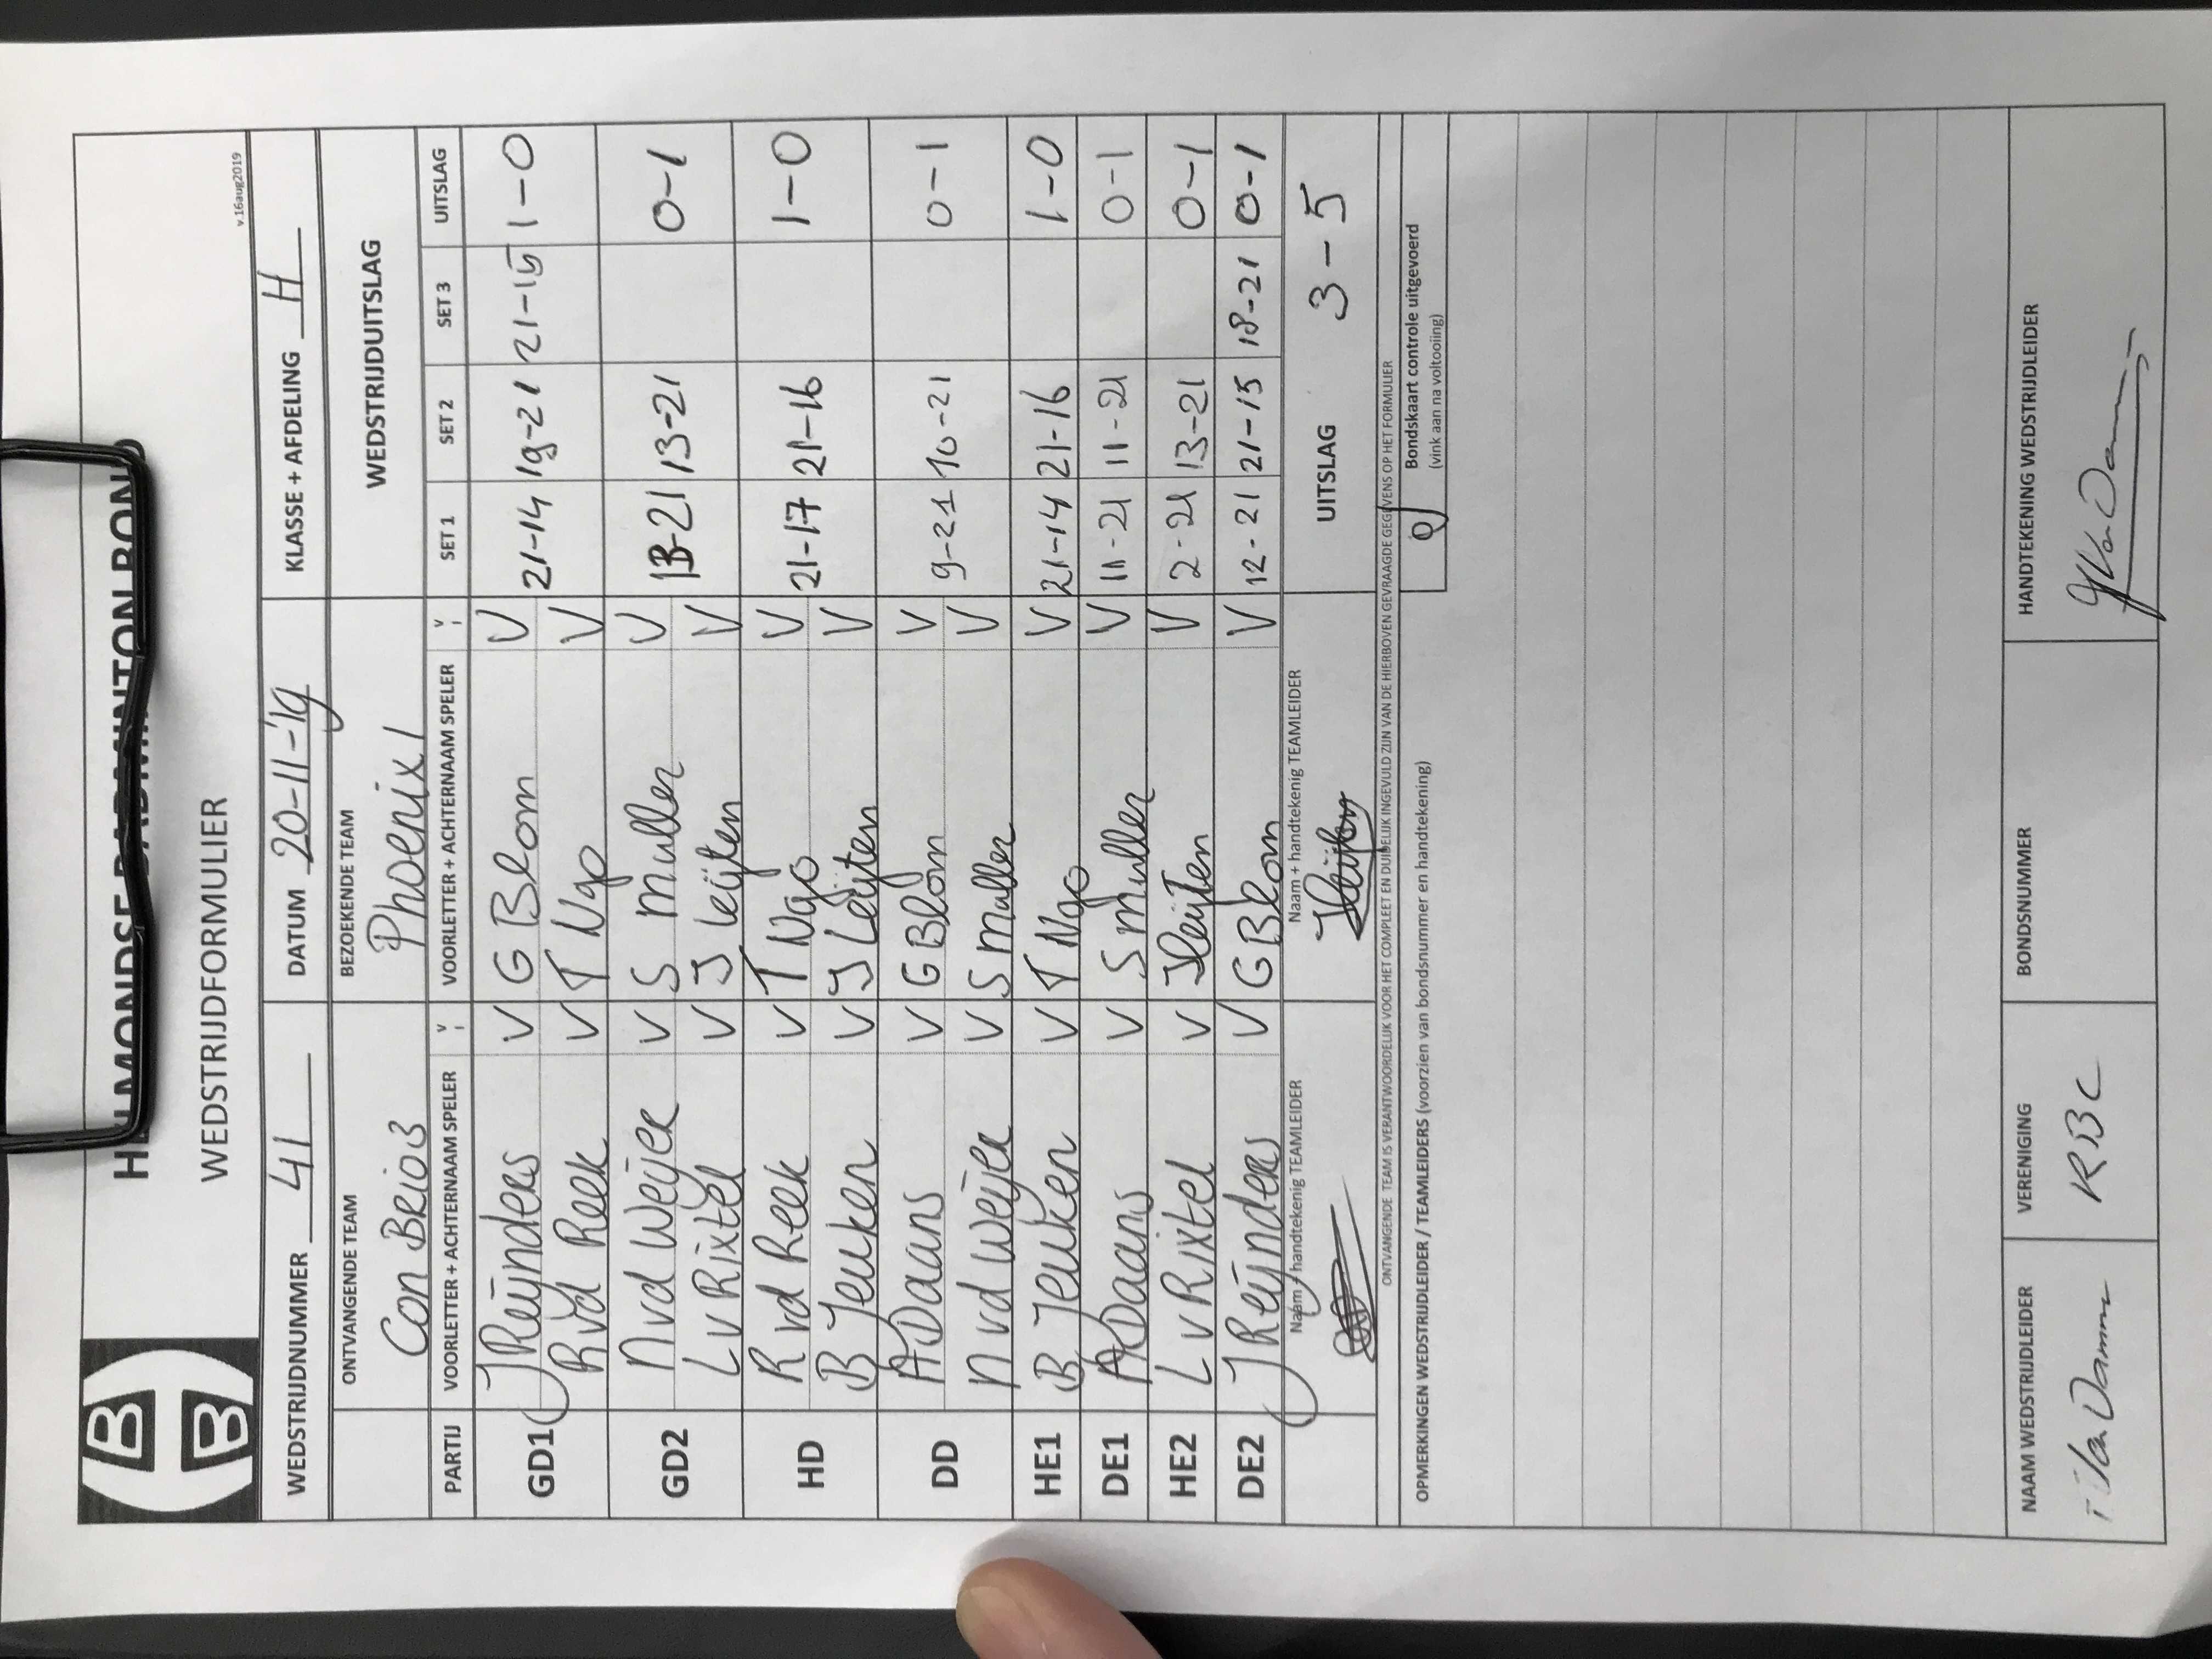 HELMONDSE BADMINTON BOND
WEDSTRIJDFORMULIER
v.16aug2019
WEDSTRIJDNUMMER 41 DATUM 20-11-'19 KLASSE + AFDELING H
ONTVANGENDE TEAM BEZOEKENDE TEAM WEDSTRIJDUITSLAG
Con Brio3 Phoenix 1
PARTIJ VOORLETTER + ACHTERNAAM SPELER V VOORLETTER + ACHTERNAAM SPELER V SET 1 SET 2 SET 3 UITSLAG
GD1 J Reijnders V G Blom V 21-14 19-21 21-15 1-0
R vd Reek V T Ngo V
GD2 N vd Weijer V S Muller V 13-21 13-21 0-1
L v Rixtel V J Leijten V
HD R vd Reek V T Ngo V 21-17 21-16 1-0
B Jeuken V J Leijten V
DD A Daans V G Blom V 9-21 10-21 0-1
N vd Weijer V S Muller V
HE1 B Jeuken V T Ngo V 21-14 21-16 1-0
DE1 A Daans V S Muller V 11-21 11-21 0-1
HE2 L v Rixtel V J Leijten V 2-21 13-21 0-1
DE2 J Reijnders V G Blom V 12-21 21-15 18-21 0-1
Naam + handtekenig TEAMLEIDER Naam + handtekenig TEAMLEIDER UITSLAG 3-5
JLeijten
ONTVANGENDE TEAM IS VERANTWOORDELIJK VOOR HET COMPLEET EN DUIDELIJK INGEVULD ZIJN VAN DE HIERBOVEN GEVRAAGDE GEGEVENS OP HET FORMULIER
OPMERKINGEN WEDSTRIJDLEIDER / TEAMLEIDERS (voorzien van bondsnummer en handtekening)
Bondskaart controle uitgevoerd
(vink aan na voltooiing)
NAAM WEDSTRIJDLEIDER VERENIGING BONDSNUMMER HANDTEKENING WEDSTRIJDLEIDER
RBC